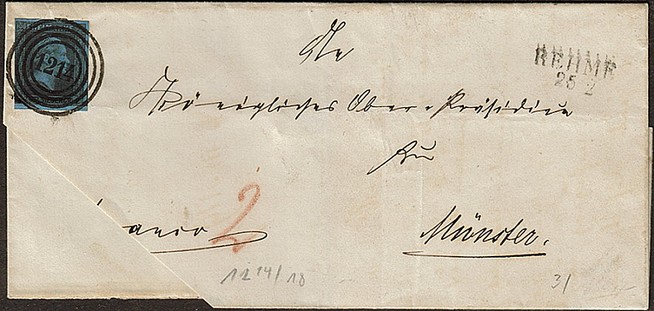 1214
REHME
25 2
An
Königliches Ober-Präsidium
zu
Münster.
anco
2
1214/18
31